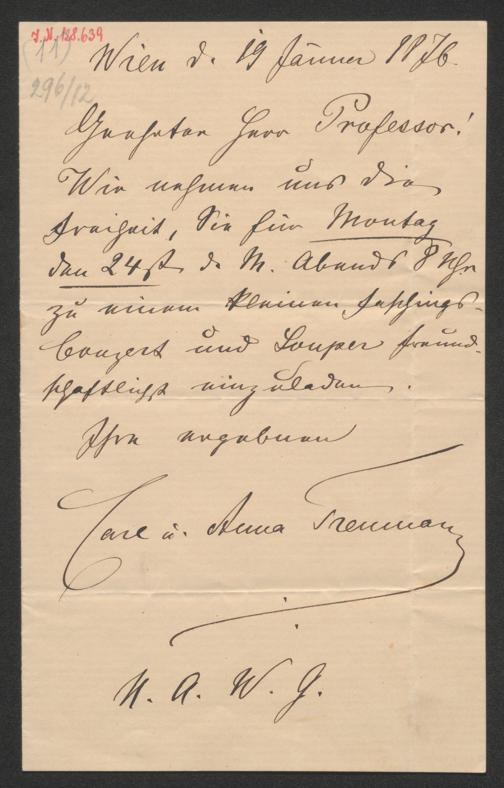 I. N. 138.639
(11)
296/12
Wien d. 19 Jänner 1876.
Geehrter Herr Professor!
Wir nehmen uns die
Freiheit, Sie für Montag
den 24st d. M. Abends 8 Uhr
zu einem kleinen Faschings-
Conzert und Souper freund-
schaftlichst einzuladen.
Ihre ergebenen
Carl u. Anna
U. A. W. G.